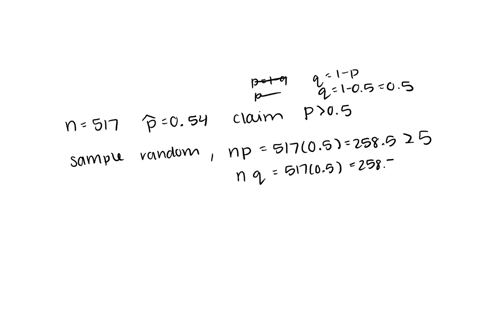 q = 1-p
q = 1-0.5 = 0.5
n = 517 p̂ = 0.54 claim p > 0.5
sample random, np = 517(0.5) = 258.5 ≥ 5
nq = 517(0.5) = 258.